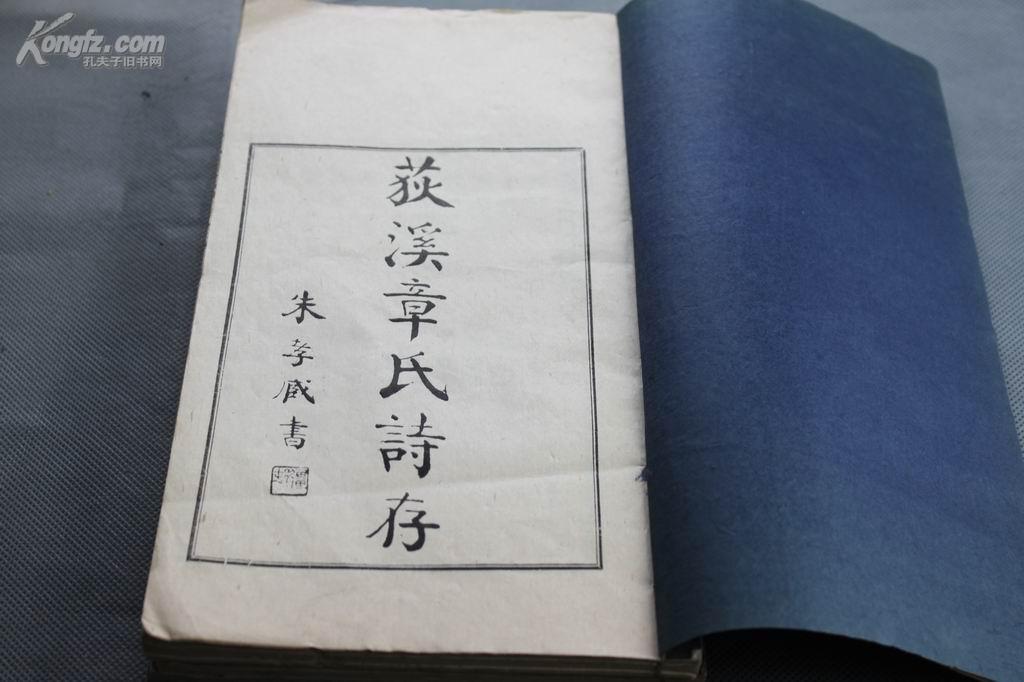 Kongfz.com
孔夫子旧书网
荻溪章氏詩存
朱孝臧書